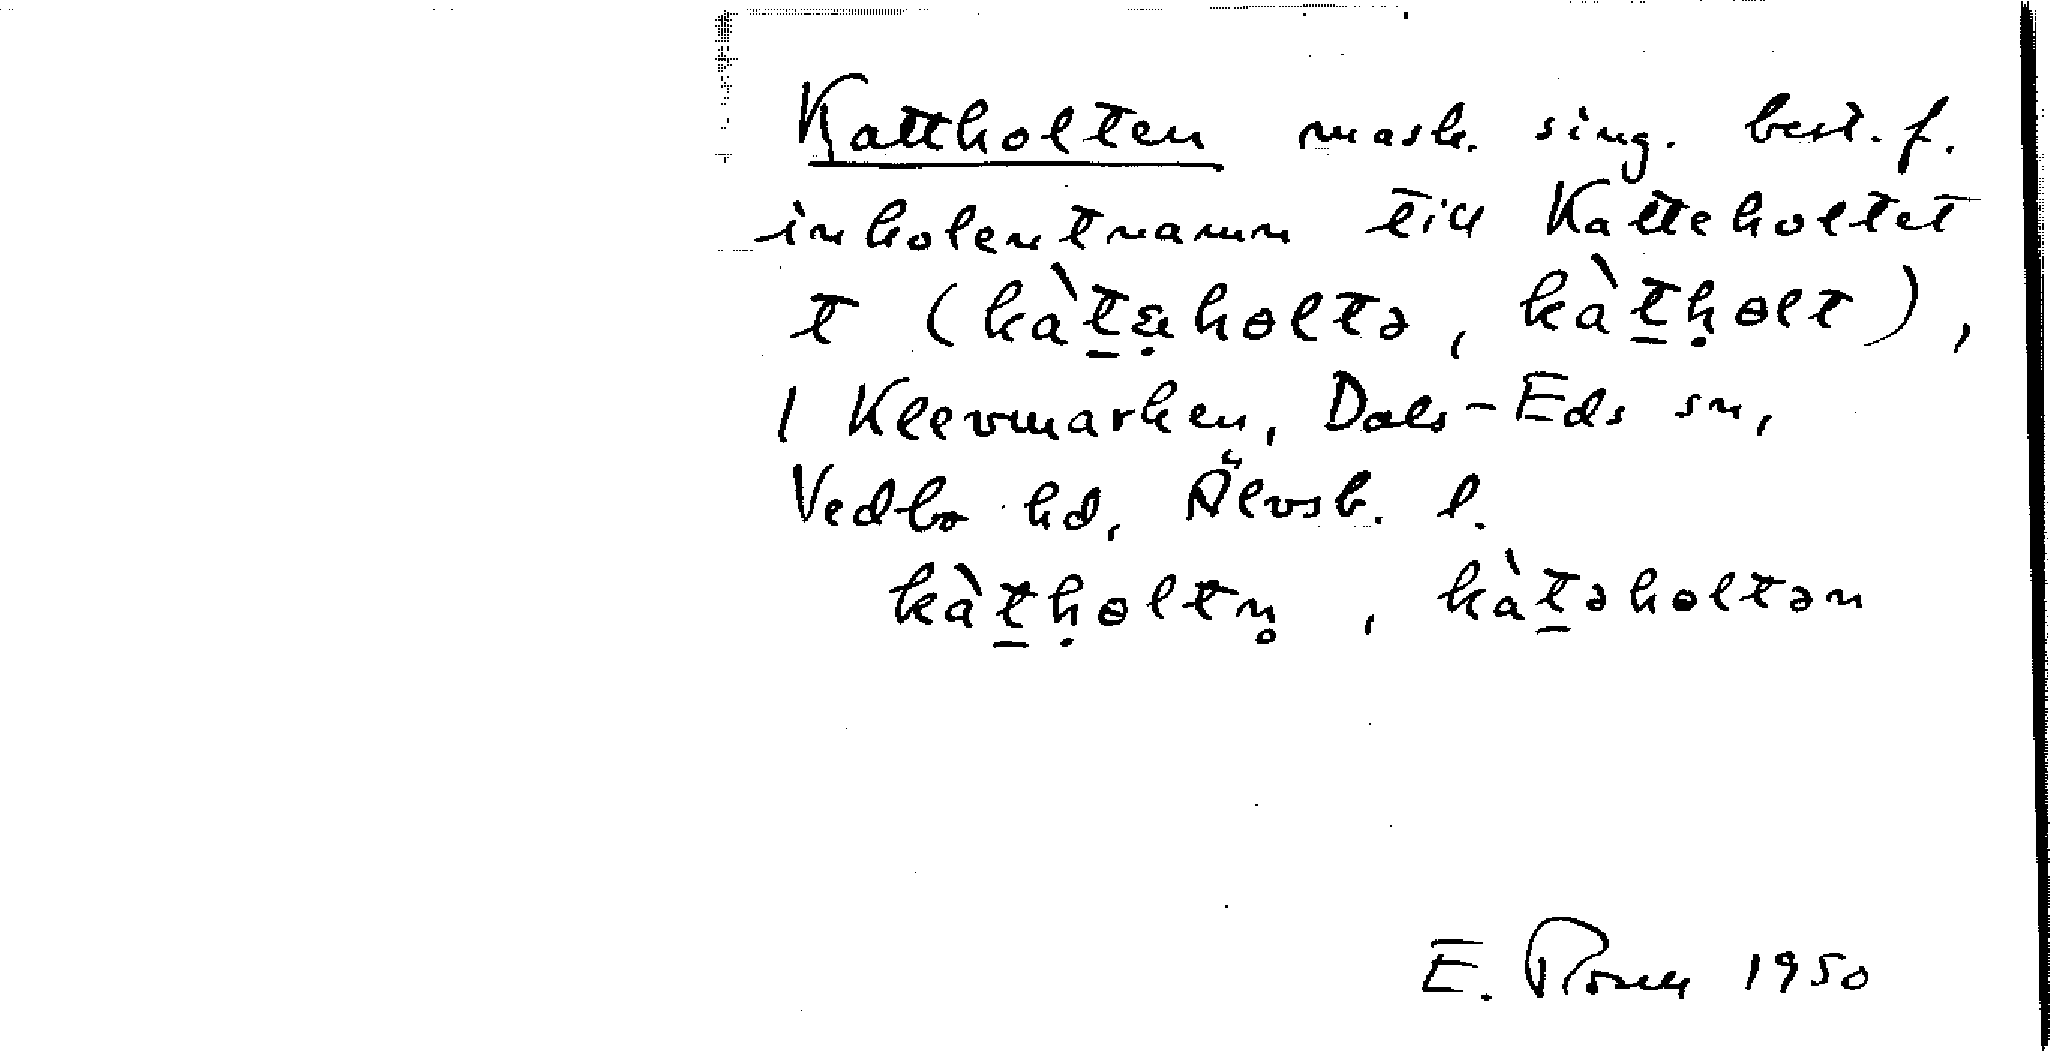 Kattholten mask. sing. best. f.
inkolentnamn till Katteholtet
t (kàt̲ạhɵltə, kàt̲ḥɵlt),
1 Klevmarken, Dals-Eds sn,
Vedbo hd, Älvsb. l.
kàt̲ḥɵltn̥, kàt̲əhɵltən
E. 1950